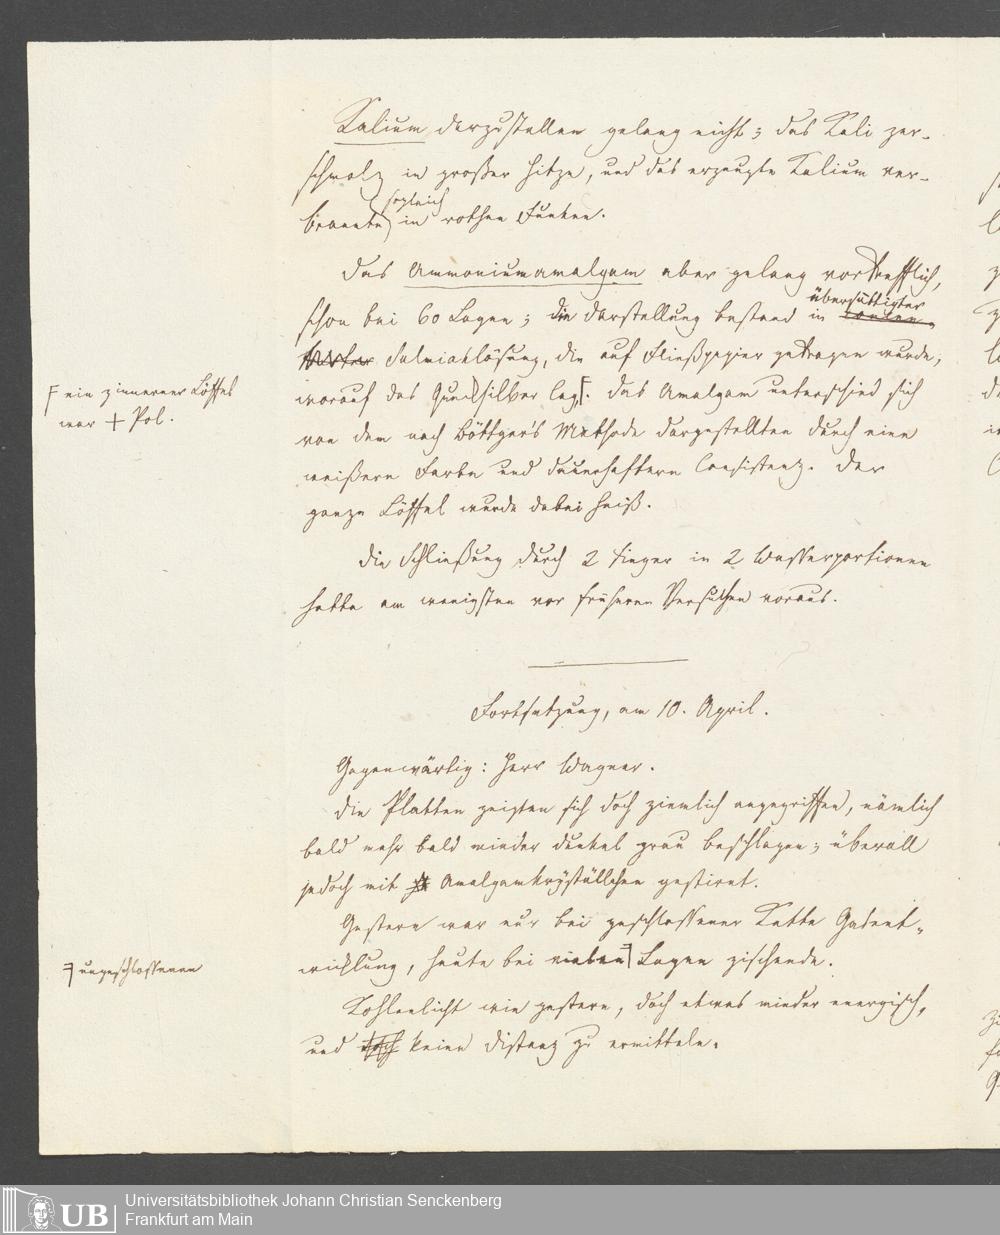 Kalium darzustellen gelang nicht; das Kali zer-
schmolz in großer Hitze, und das erzeugte Kalium ver-
brannte sogleich in rothen Funken.
Das Ammoniumamalgam aber gelang vortrefflich,
schon bei 60 Lagen; die Darstellung bestand in übersättigter
Salmiaklösung, die auf Fließpapier getragen wurde,
worauf das Quecksilber lag. Das Amalgam unterschied sich
ein zinnerner Löffel
war + Pol.
von dem nach Böttger's Methode dargestellten durch eine
weißere Farbe und dauerhaftere Consistenz. Der
ganze Löffel wurde dabei heiß.
Die Schließung durch 2 Finger in 2 Wasserportionen
hatte am wenigsten vor früheren Versuchen voraus.
Fortsetzung, am 10. April.
Gegenwärtig: Herr Wagner.
Die Platten zeigten sich doch ziemlich angegriffen, nämlich
bald mehr bald minder dunkel grau beschlagen; überall
jedoch mit Amalgamkryställchen gestirnt.
Gestern war nur bei geschlossener Kette Gasent-
wicklung, heute bei vielen Lagen zischende.
ungeschlossenen
Kohlenlicht wie gestern, doch etwas minder energisch,
und keine Distanz zu ermitteln.
Universitätsbibliothek Johann Christian Senckenberg
Frankfurt am Main
UB